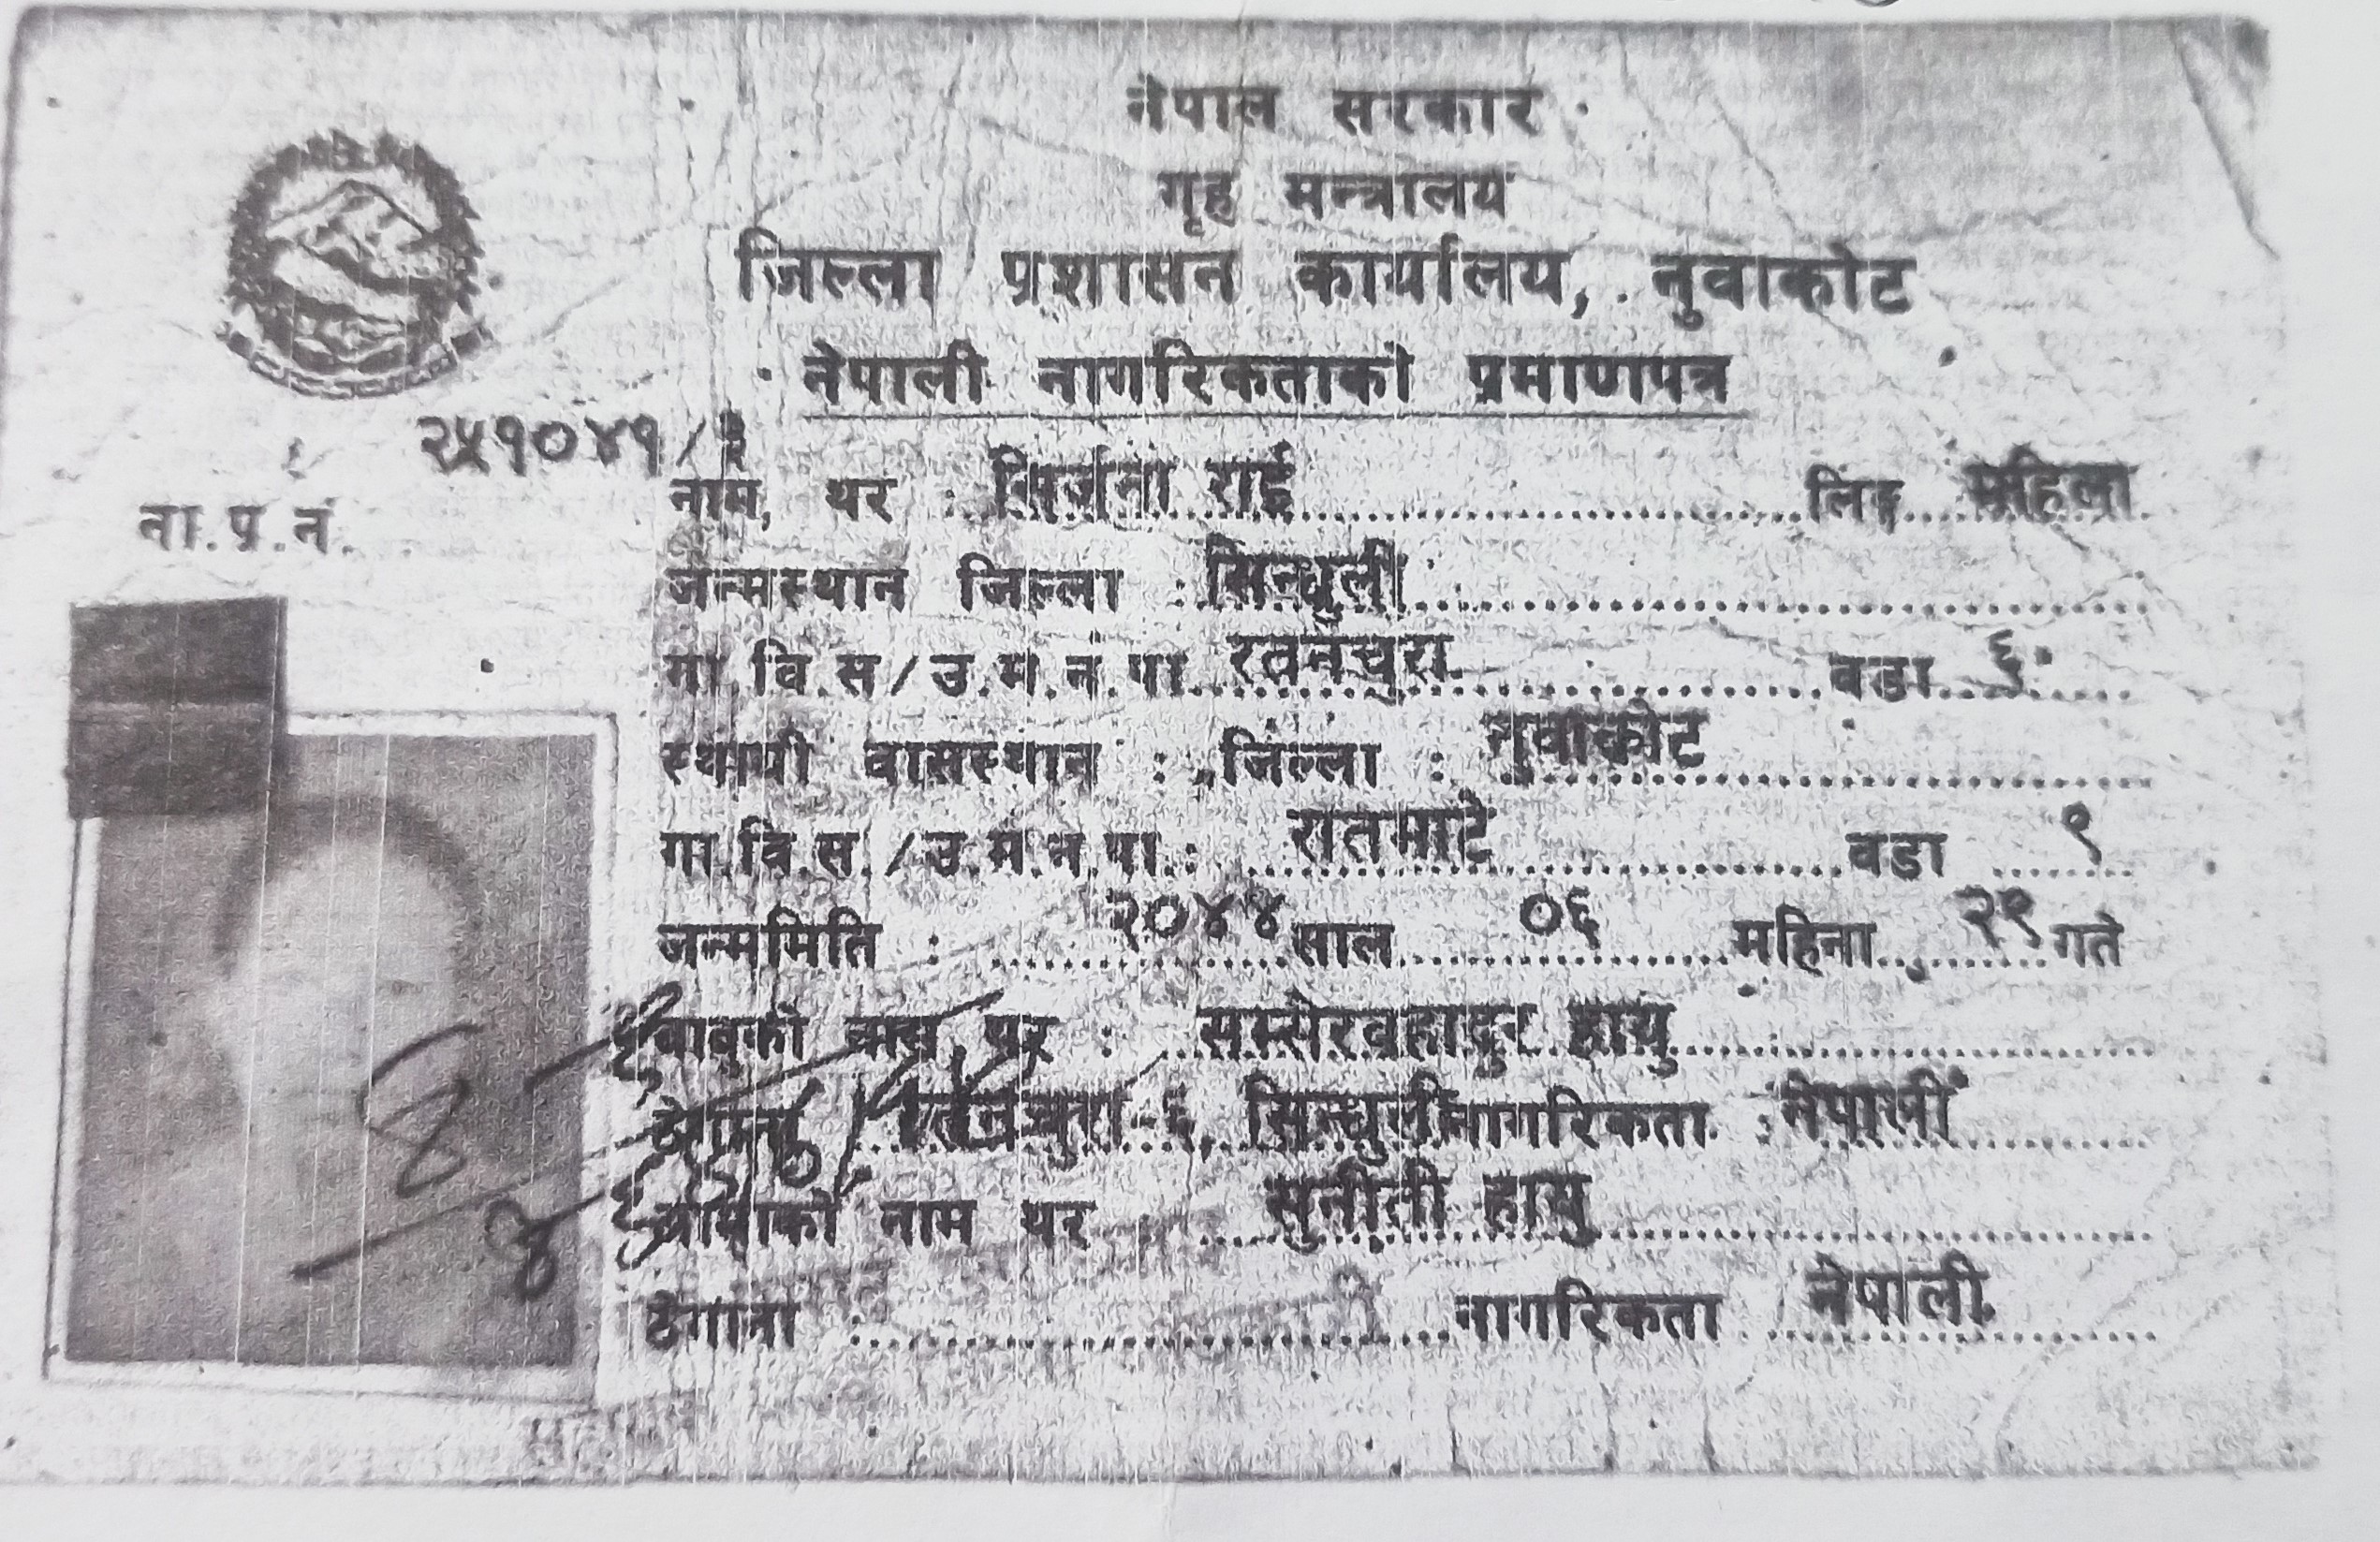 नेपाल सरकार
गृह मन्त्रालय
जिल्ला प्रशासन कार्यालय, नुवाकोट
नेपाली नागरिकताको प्रमाणपत्र
२५१०४१/
ना.प्र.नं.
नाम, थर : सिर्जना राई लिङ्ग महिला
जन्मस्थान जिल्ला : सिन्धुली
गा.वि.स/उ.म.न.पा रतनचुरा वडा ६
स्थायी वासस्थान : जिल्ला : नुवाकोट
गा.वि.स./उ.म.न.पा : रातमाटे वडा ९
जन्ममिति : २०४४ साल ०६ महिना २९ गते
बाबुको नाम थर : सम्सेरबहादुर हायु
ठेगाना रतनचुरा-६, सिन्धुली नागरिकता : नेपाली
आमाको नाम थर : सुनीती हायु
ठेगाना : नागरिकता नेपाली